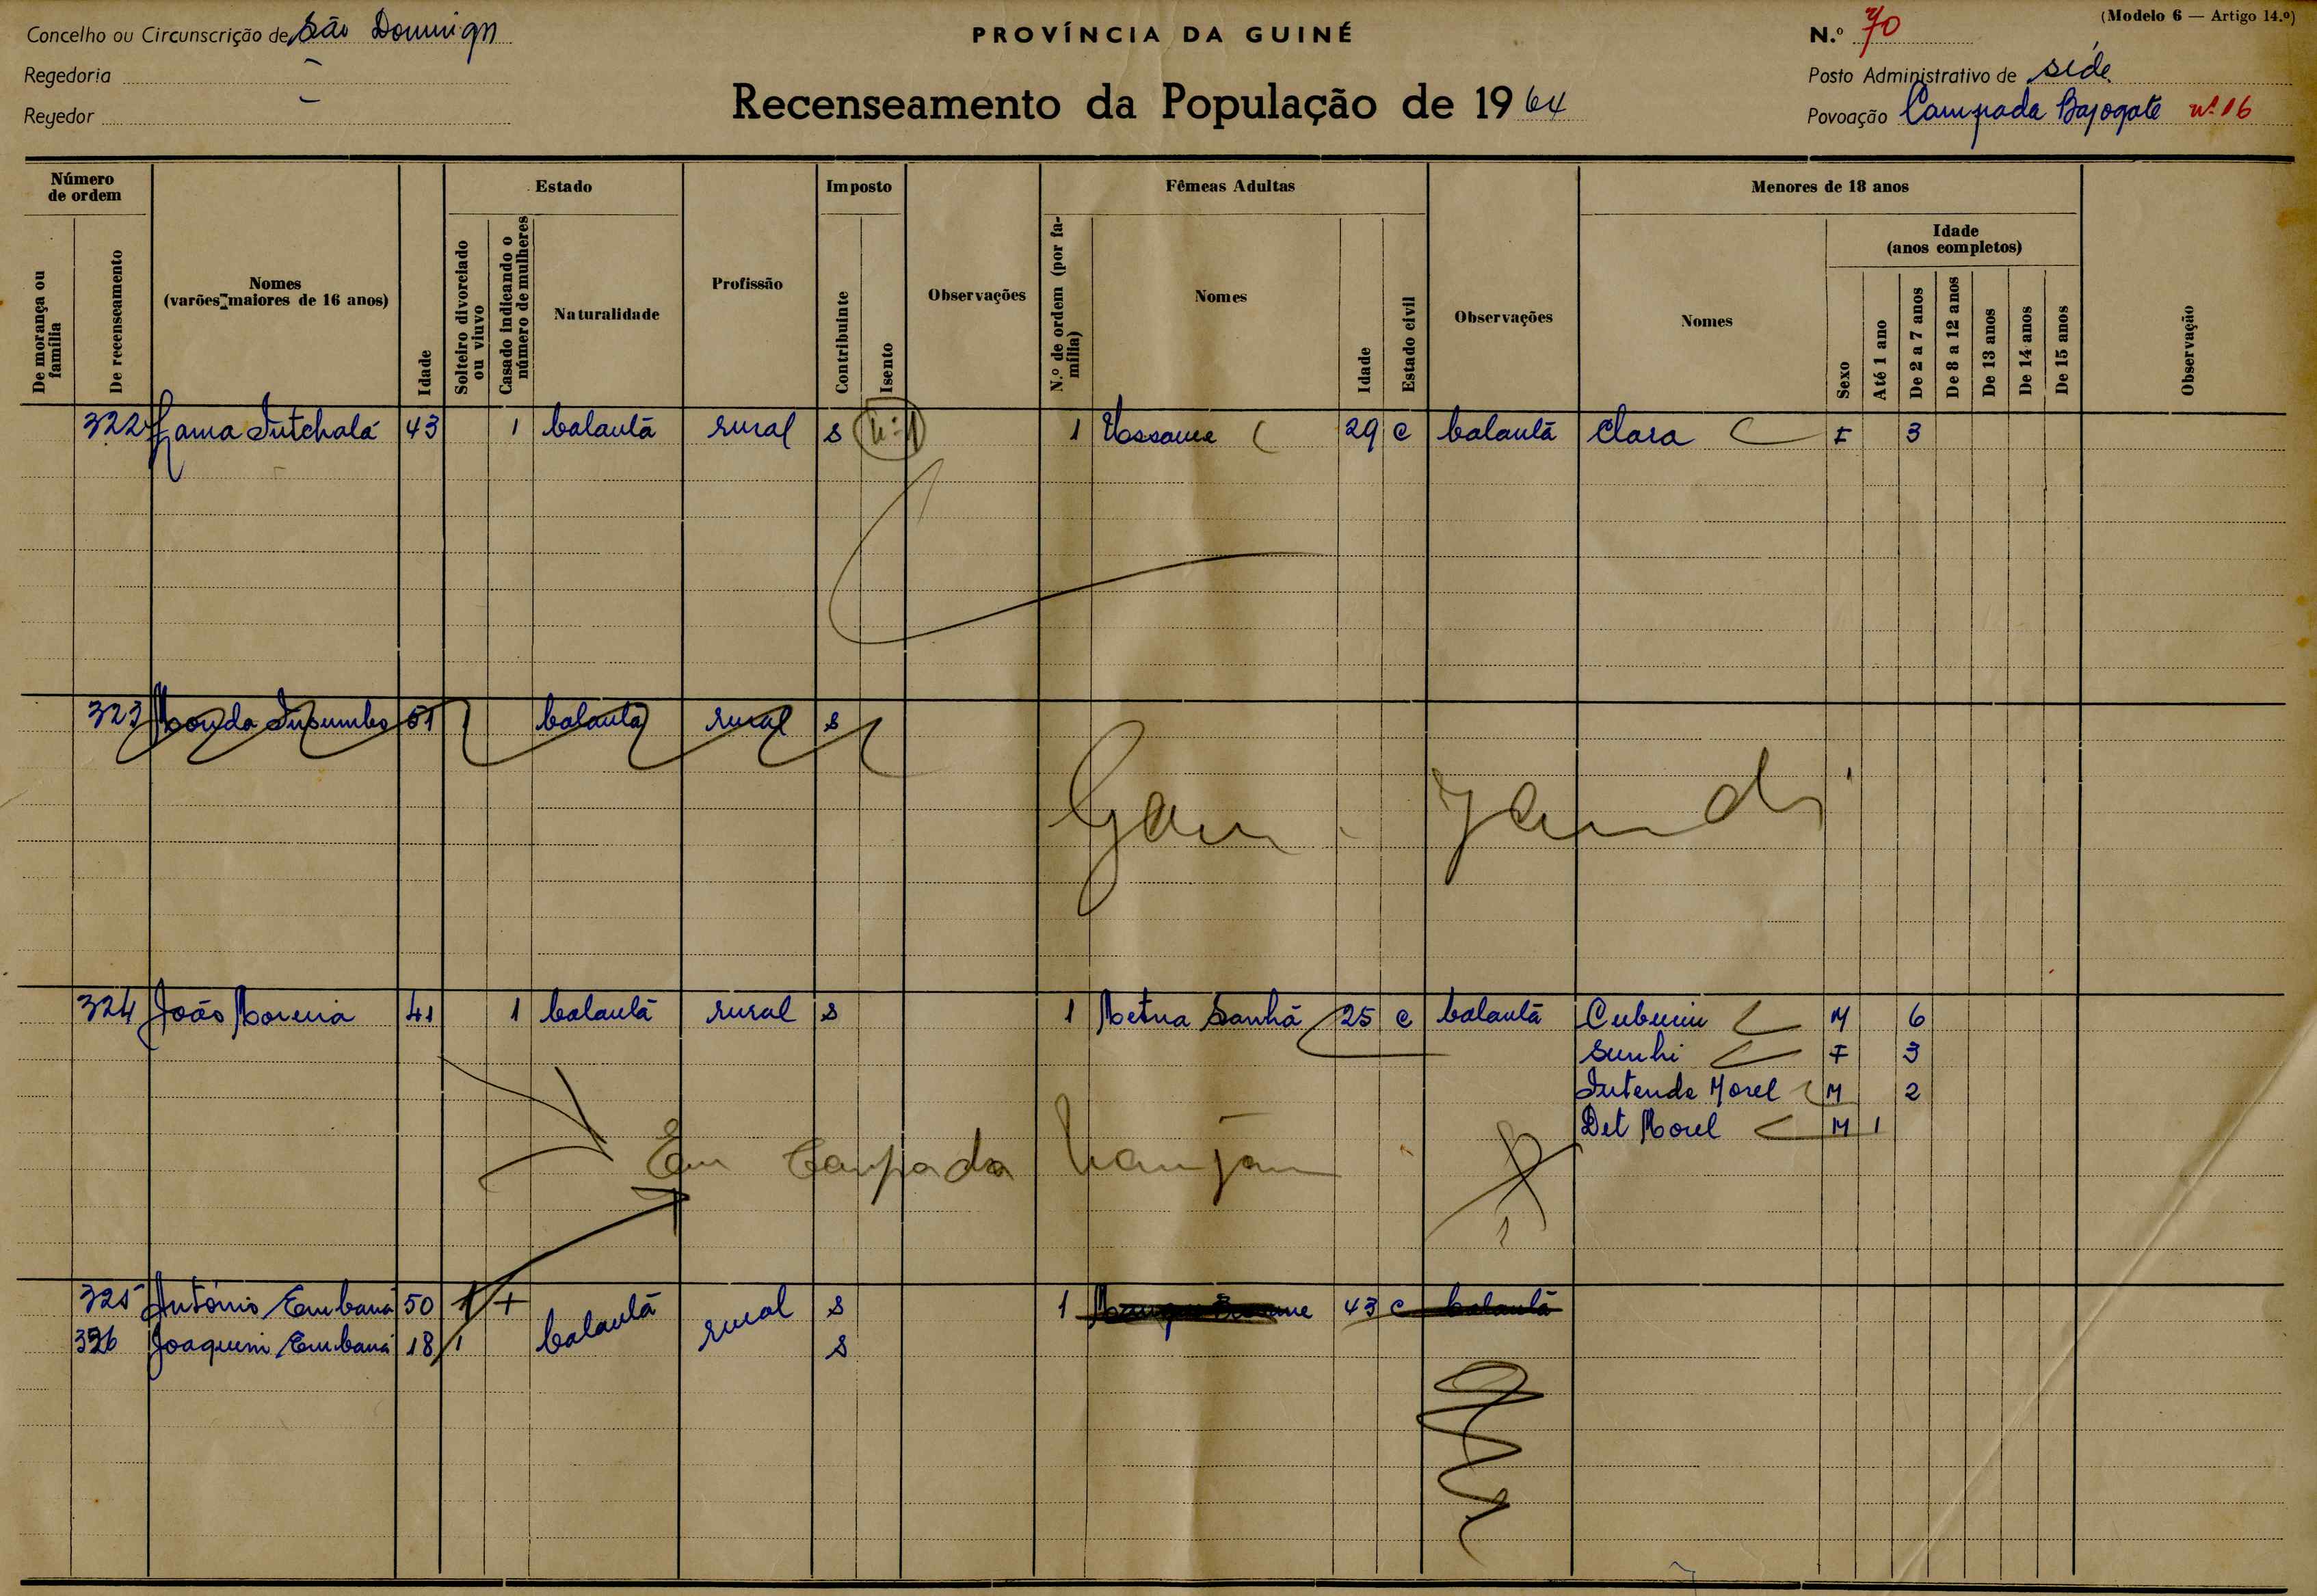 (Modelo 6 — Artigo 14.º)
Concelho ou Circunscrição de São Domingos
PROVÍNCIA DA GUINÉ
N.º 70
Regedoria -
Recenseamento da População de 1964
Posto Administrativo de séde
Regedor -
Povoação Campada Bajogate nº 16
Número de ordem
Estado
Imposto
Fêmeas Adultas
Menores de 18 anos
De morança ou família
De recenseamento
Nomes (varões maiores de 16 anos)
Idade
Solteiro divorciado ou viuvo
Casado indicando o número de mulheres
Naturalidade
Profissão
Contribuinte
Isento
Observações
N.º de ordem (por família)
Nomes
Idade
Estado civil
Observações
Nomes
Idade (anos completos)
Sexo
Até 1 ano
De 2 a 7 anos
De 8 a 12 anos
De 13 anos
De 14 anos
De 15 anos
Observação
322 Intchalá 43 1 balantã rural s 1 29 c balantã Clara F 3
323 51 1 balantã rural s
Gam - Jandi
324 João 41 1 balantã rural s 1 Sanhá 25 c balantã M 6
Sunhi F 3
M 2
Det M 1
Em Campada
325 António Embaná 50 1 + balantã rural s 1 43 c balantã
326 Joaquim Embaná 18 1 s